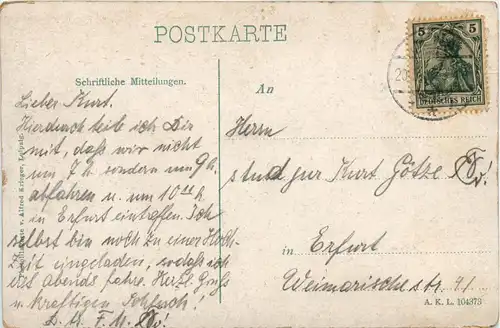 POSTKARTE
Schriftliche Mitteilungen.
An
5 5
DEUTSCHES REICH
Lieber Kurt.
Hierdurch teile ich Dir
mit, daß wir nicht
um 7 h. sondern um 9 h.
abfahren u. um 10
in Erfurt eintreffen. Ich
selbst bin noch zu einer Hoch-
zeit eingeladen, sodaß ich
erst abends fahre. Herzl. Gruß
u. kräftigen
Herrn
stud jur Kurt Götze
in Erfurt
Weimarische str. 41
v. Alfred Krieger, Leipzig.
A. K. L. 104373